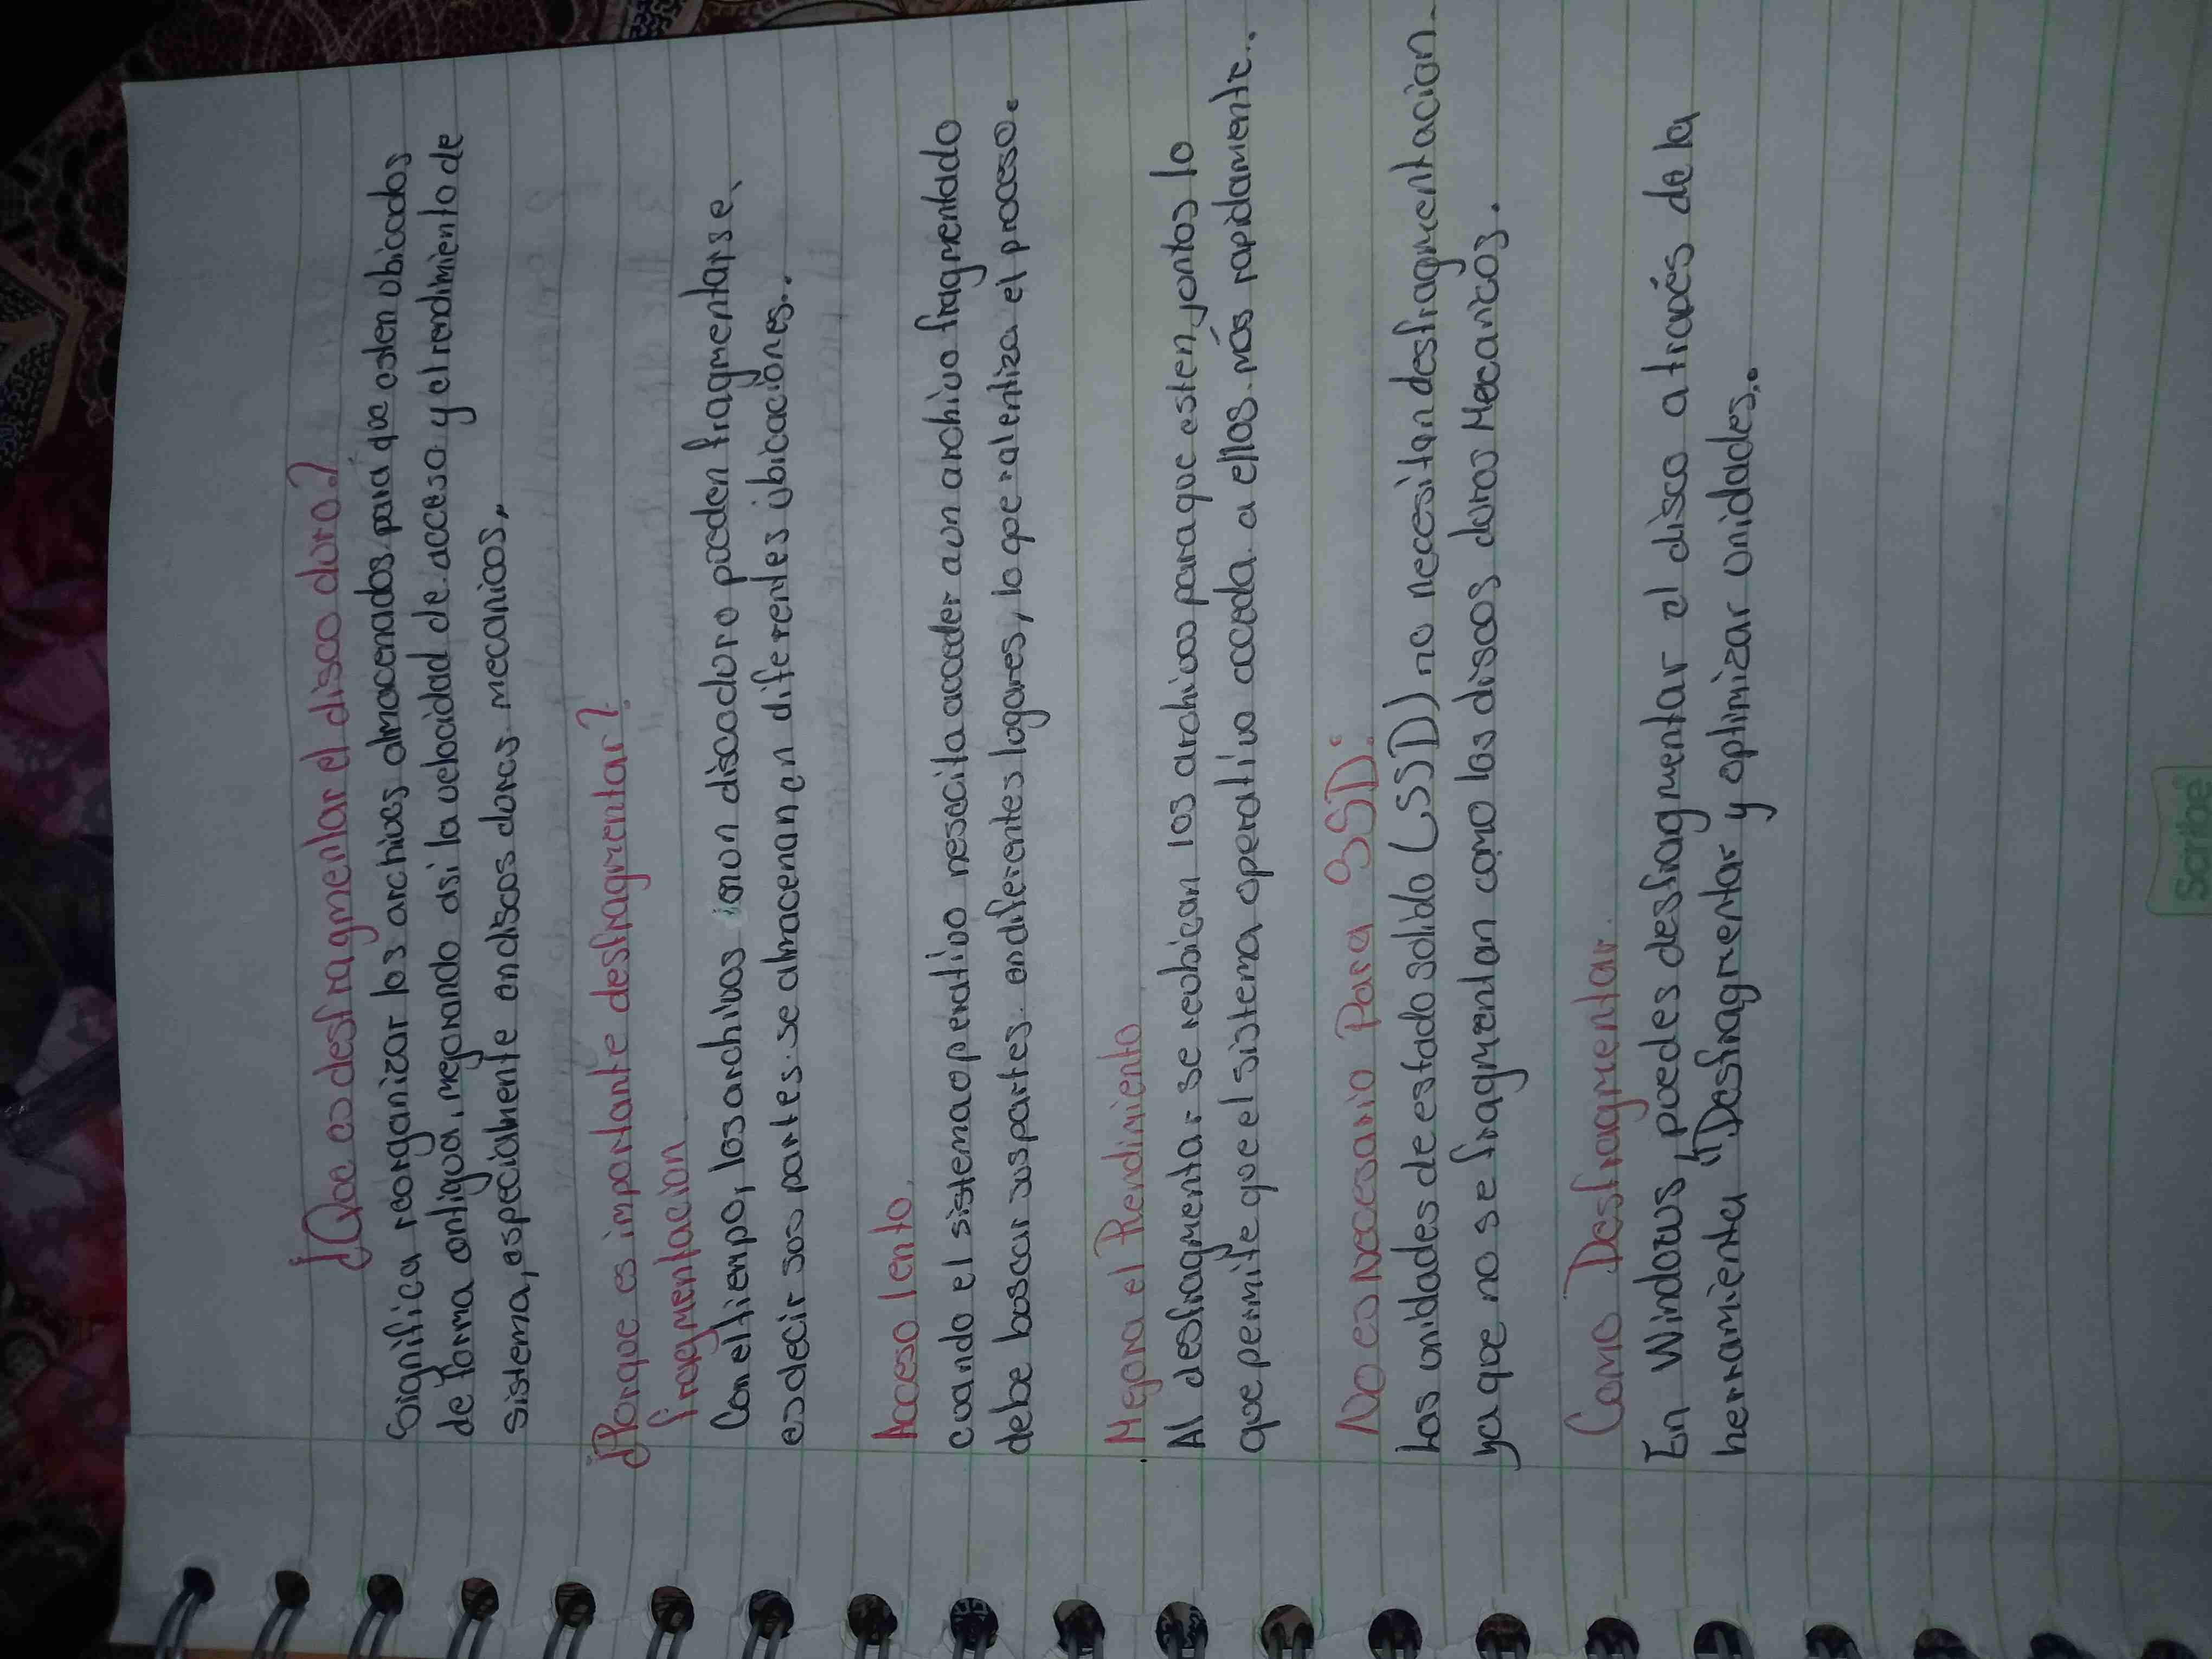 ¿Que es desfragmentar el disco duro?
Significa reorganizar los archivos almacenados para que esten ubicados
de forma contigua, mejorando asi la velocidad de acceso y el rendimiento de
sistema, especialmente en discos duros mecanicos.
¿Porque es importante desfragmentar?
fragmentacion
Con el tiempo, los archivos en un disco duro pueden fragmentarse,
es decir sus partes se almacenan en diferentes ubicaciones..
Acceso lento.
cuando el sistema operativo nesecita acceder a un archivo fragmentado
debe buscar sus partes en diferentes lugares, lo que ralentiza el proceso.
Mejora el Rendimiento
Al desfragmentar se reubican los archivos para que esten juntos lo
que permite que el sistema operativo acceda a ellos más rapidamente..
No es necesario Para SSD:
Las unidades de estado solido (SSD) no necesitan desfragmentacion.
ya que no se fragmentan como los discos duros Mecanicos.
Como Desfragmentar.
En Windows, puedes desfragmentar el disco a través de la
herramienta "Desfragmentar y optimizar unidades..
Scribe